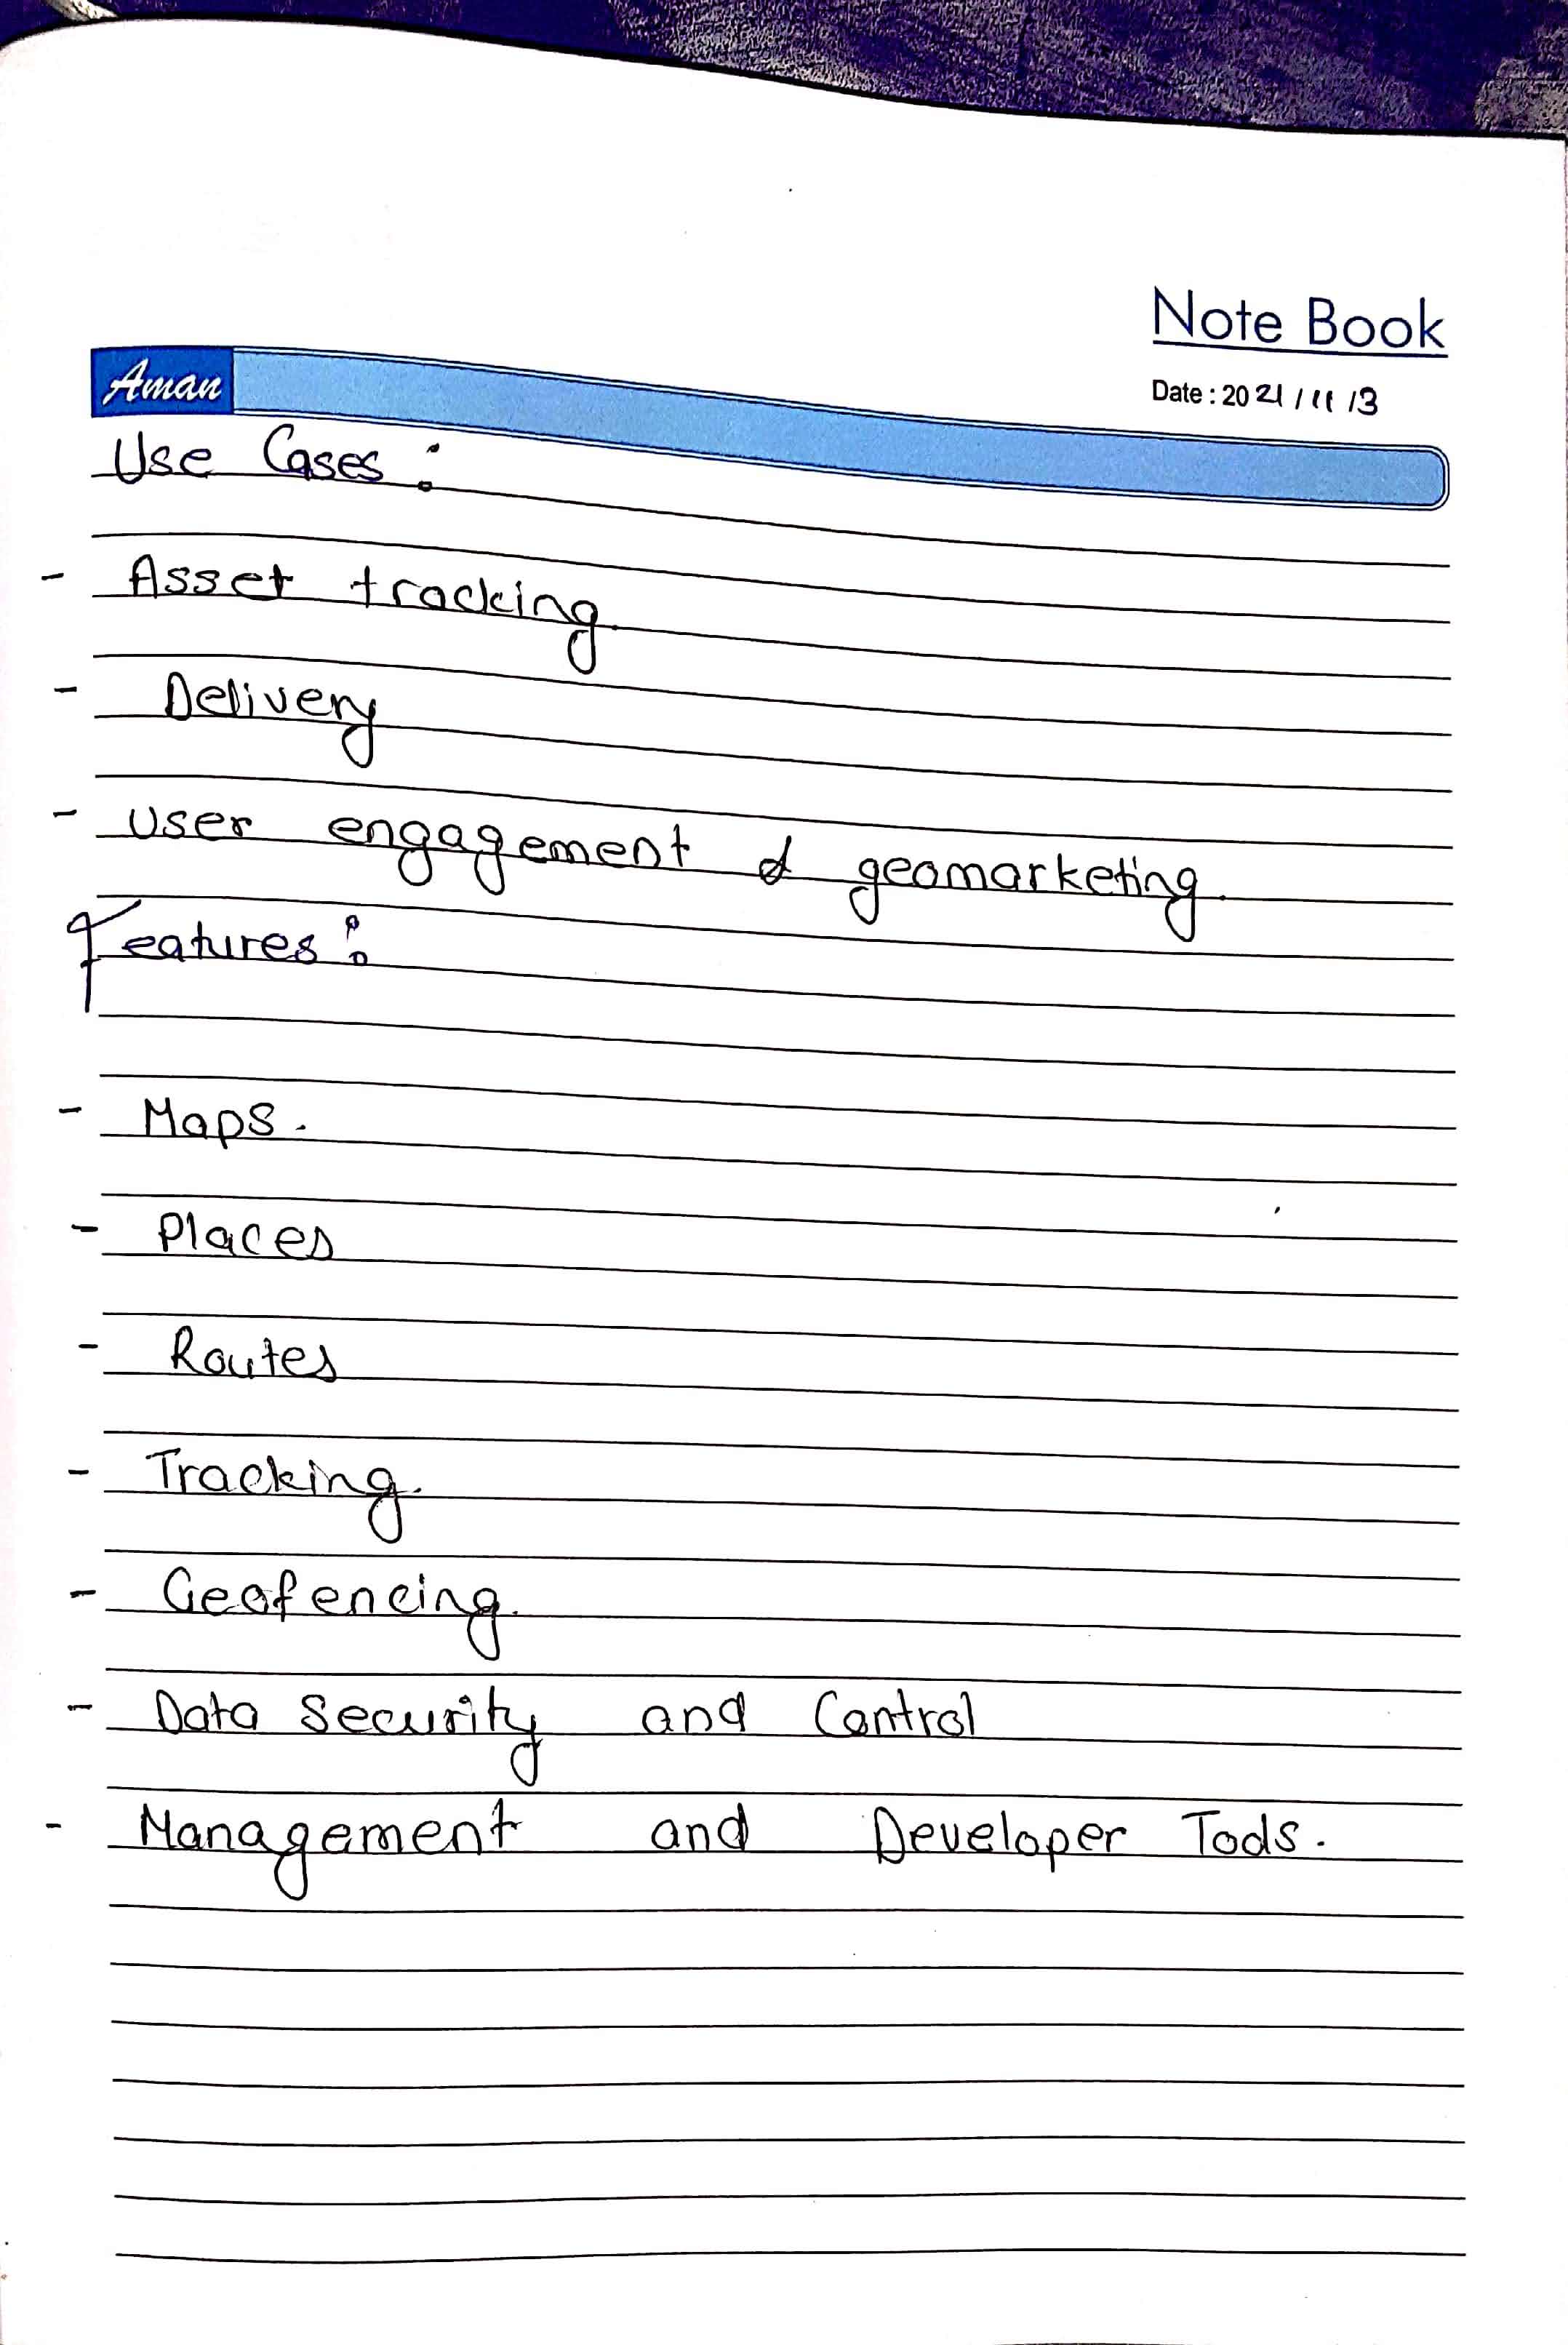 Note Book
Aman
Date : 2021 / 11 / 3
Use Cases :
- Asset tracking.
- Delivery
- User engagement & geomarketing.
Features :
- Maps.
- Places
- Routes
- Tracking.
- Geofencing.
- Data Security and Control
- Management and Developer Tools.